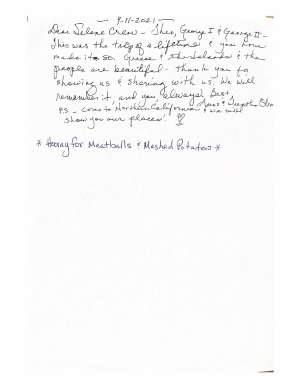 — 9.11-2021 —
Dear Selene Crew - Theo, George I & George II -
This was the trip of a lifetime & you have
made it so. Greece & the Islands & the
people are beautiful - thank you for
showing us & sharing with us. We will
remember it and you always! Best,
P.S. - Come to Northern California & we will
show you our places!
* Hooray for Meatballs & Mashed Potatoes *